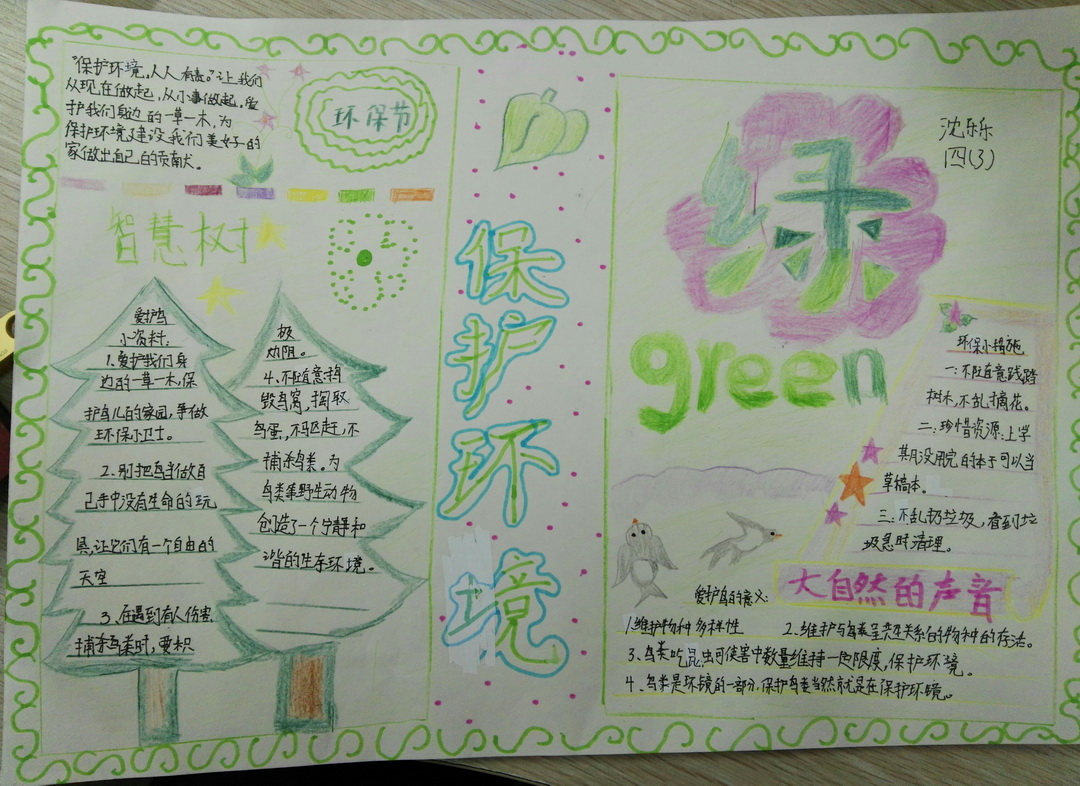 "保护环境,人人有责。"让我们
从现在做起,从小事做起,爱
护我们身边的一草一木,为
保护环境建设我们美好的
家做出自己的贡献犬。
环保节
智慧树
爱护鸟
小资料:
1.爱护我们身
边的一草一木,保
护鸟儿的家园,争做
环保小卫士。
2.别把鸟当做自
己手中没有生命的玩
具,让它们有一个自由的
天空
3.在遇到有人伤害
捕杀鸟类时,要积
极
劝阻。
4.不随意捣
毁鸟窝,掏取
鸟蛋,不驱赶,不
捕杀鸟类。为
鸟类等野生动物
创造了一个宁静和
谐的生存环境。
保护环境
绿
green
沈乐乐
四(3)
环保小措施
一:不随意践踏
树木,不乱摘花。
二:珍惜资源:上学
期没用完的本子可以当
草稿本。
三:不乱扔垃圾,看到垃
圾急时清理。
大自然的声音
爱护鸟的意义:
1.维护物种多样性 2.维护与鸟类呈关系的物种的存活。
3、鸟类吃昆虫可使害中数量维持一定限度,保护环境。
4、鸟类是环镜的一部分,保护鸟类当然就是在保护环境。